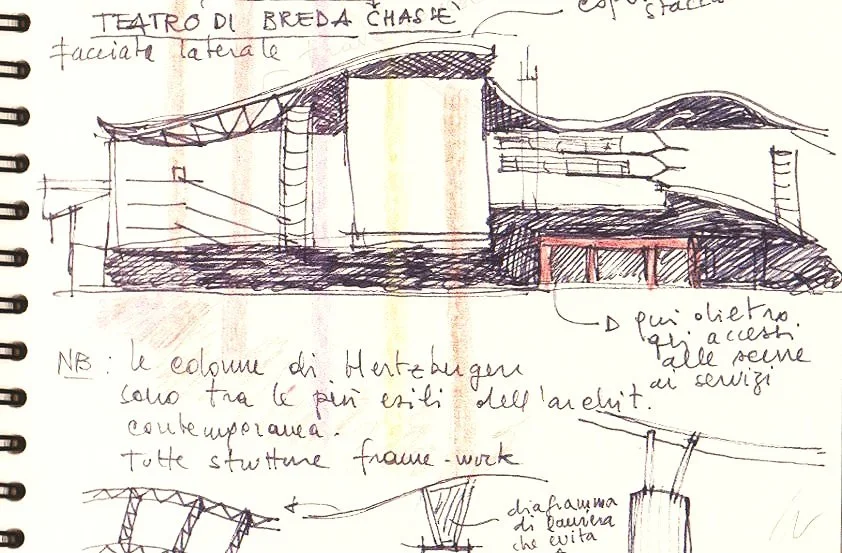 TEATRO DI BREDA CHASSÈ
facciata laterale
qui dietro
gli accessi
alle scene
ai servizi
NB: le colonne di Hertzbergen
sono tra le più esili dell'archit.
contemporanea.
tutte strutture frame-work
diaframma
di lamiera
che evita